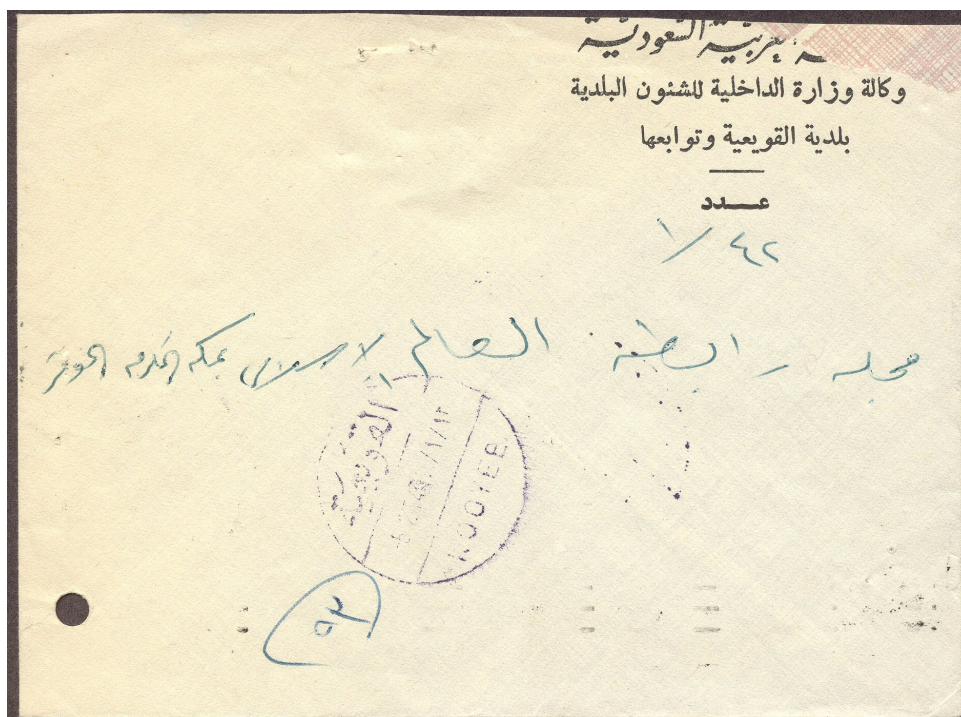 العربية السعودية
وكالة وزارة الداخلية للشئون البلدية
بلدية القويعية وتوابعها
عدد
١/٤٢
مجلة رابطة العالم الإسلامي بمكة المكرمة الموقرة
القويعية
KOOIEE
٥٣